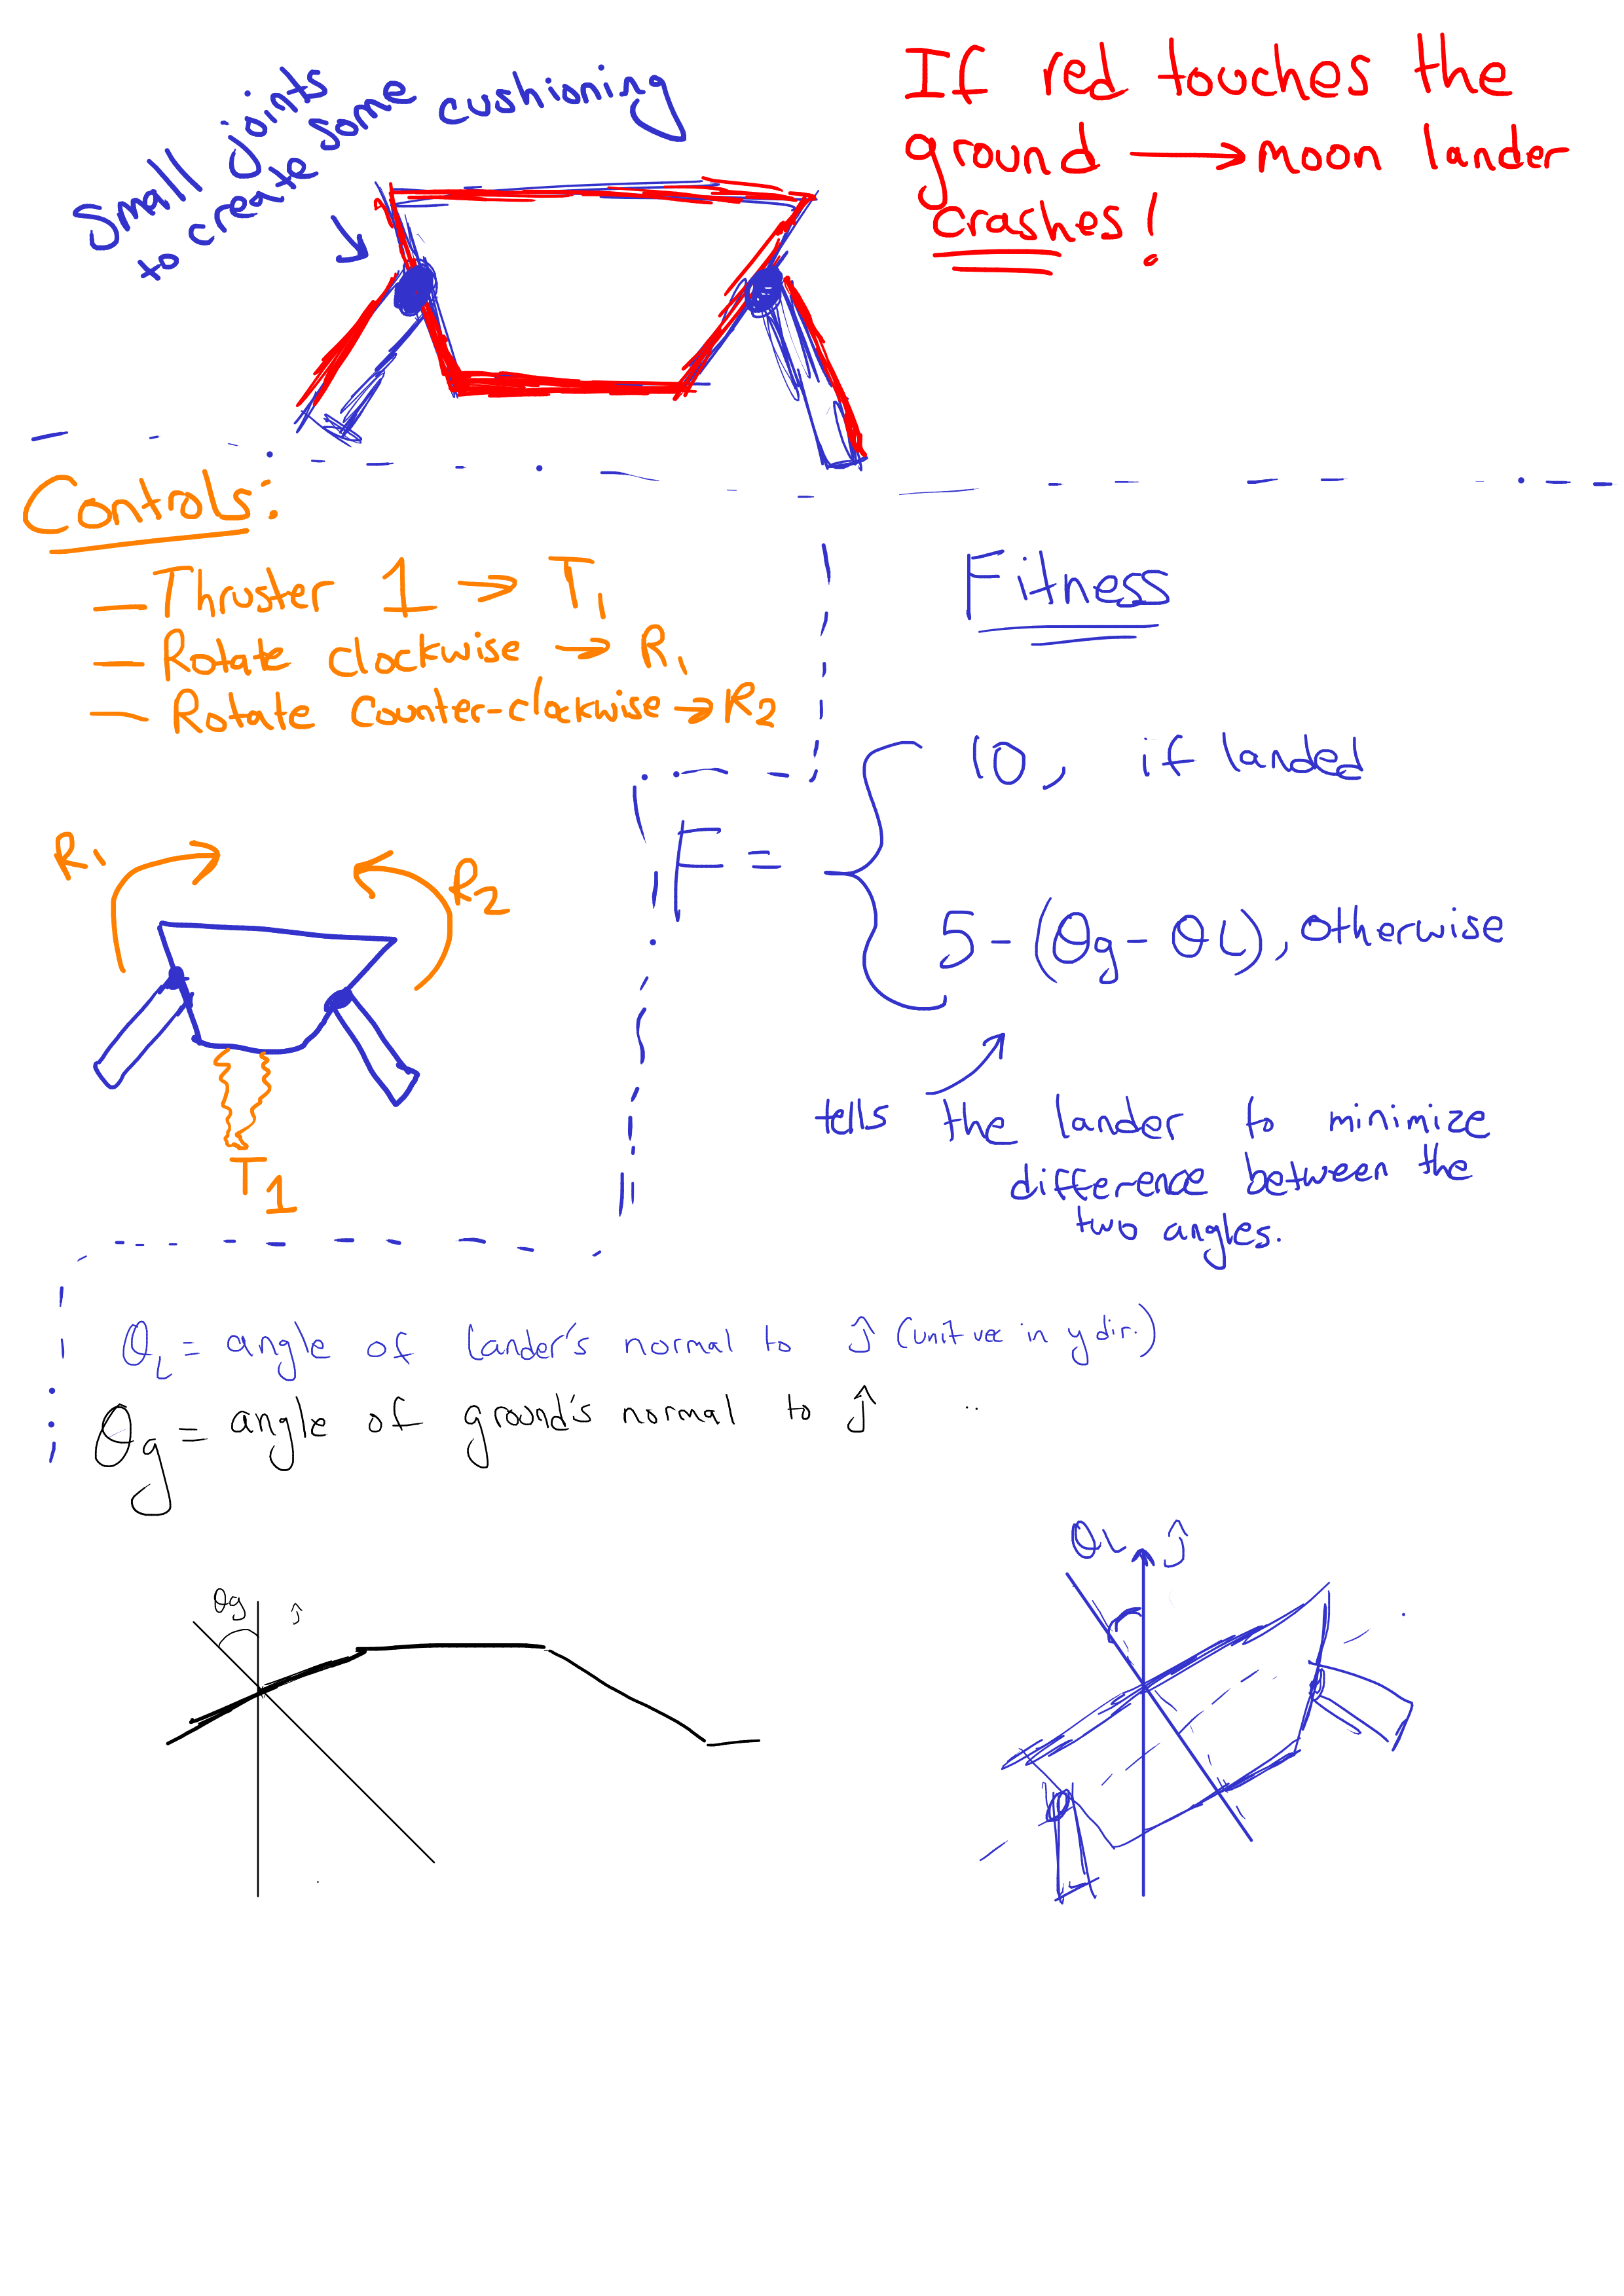 Small joints
to create some cushioning
If red touches the
ground → moon lander
crashes!
Controls:
— Thruster 1 → T₁
— Rotate clockwise → R₁
— Rotate counter-clockwise → R₂
R₁
R₂
T1
Fitness
F = { 10, if landed
5 - (θg - θL), otherwise
tells the lander to minimize
difference between the
two angles.
θL = angle of lander's normal to ĵ (unit vec in y dir.)
θg = angle of ground's normal to ĵ ..
θg ĵ
θL ĵ